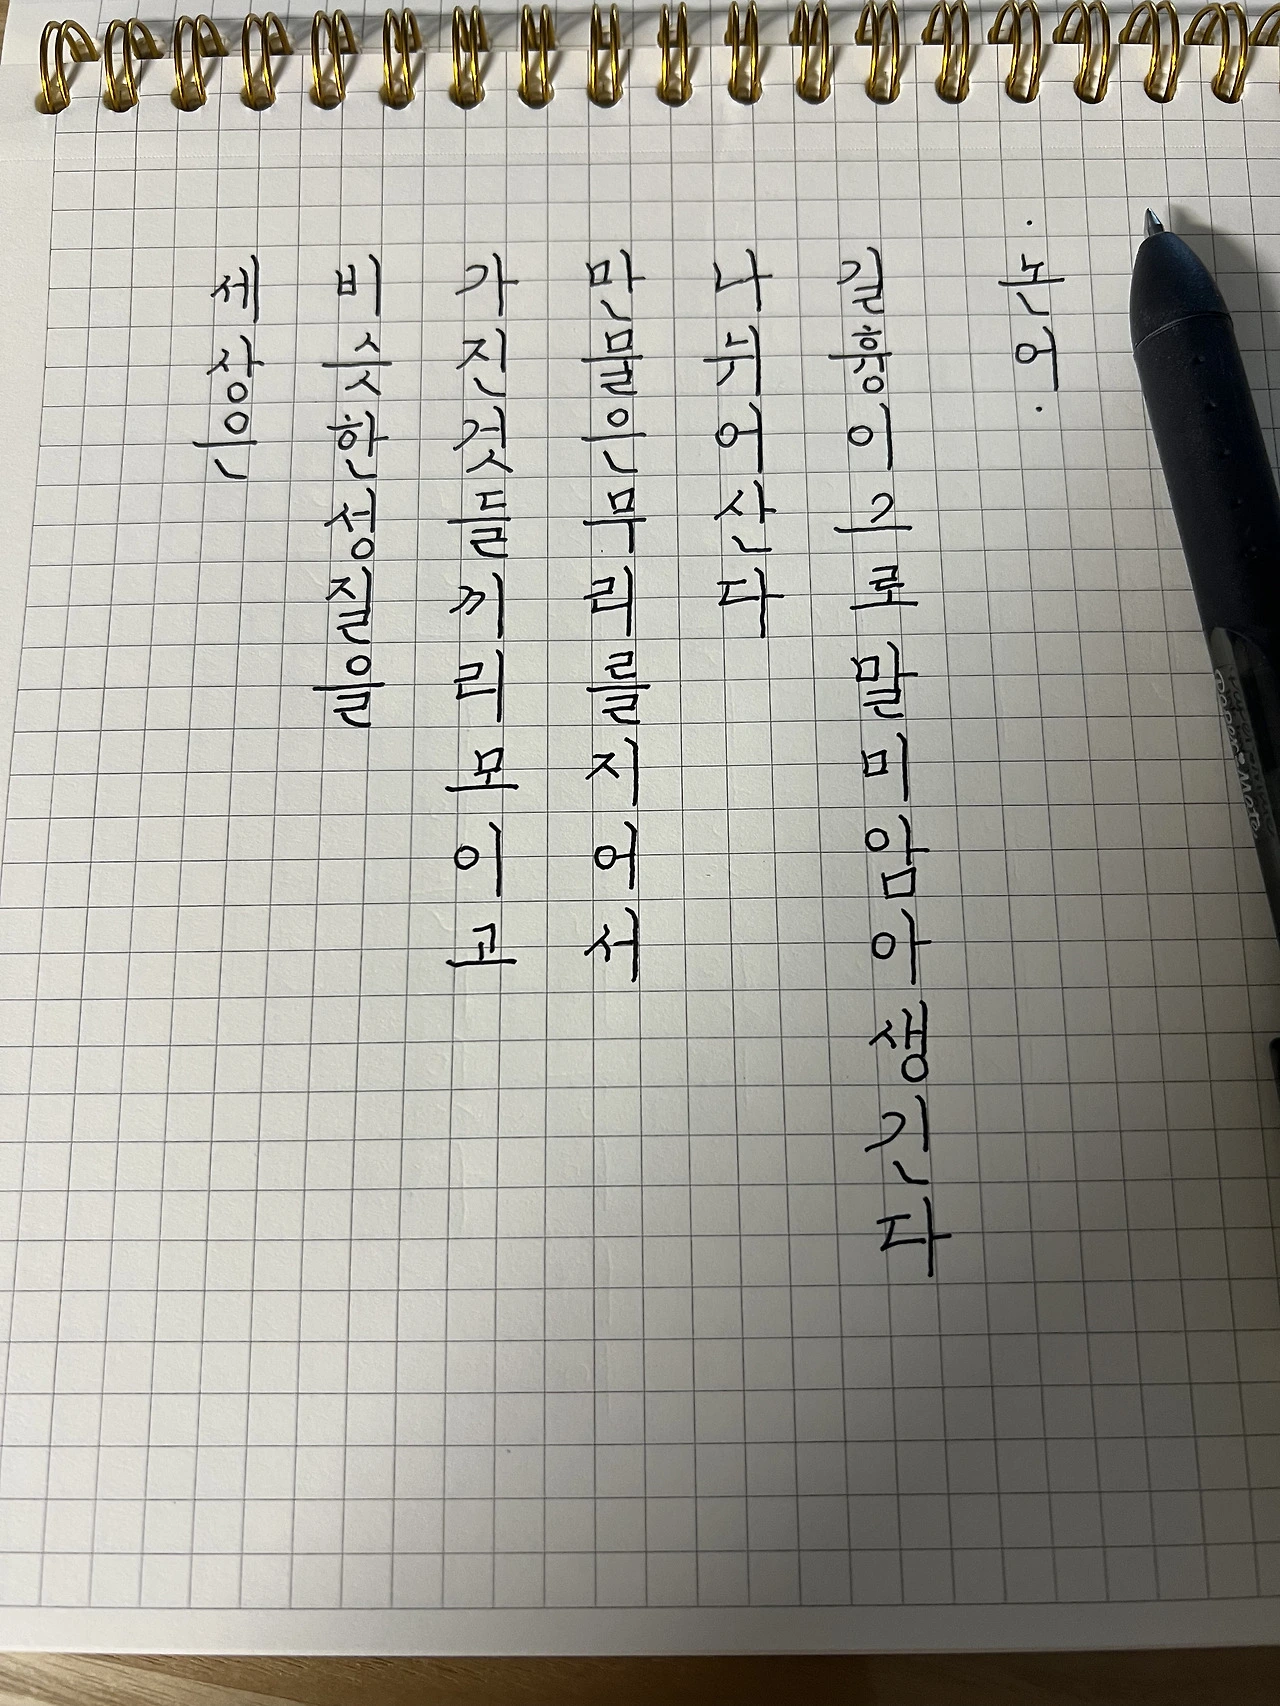 세상은
비슷한성질을
가진것들끼리모이고
만물은무리를지어서
나뉘어산다
길흉이그로말미암아생긴다
·논어·
Paper Mate